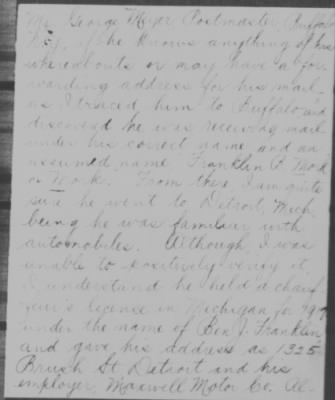 Mr. George Meyer Postmaster Buffalo
N.Y. if he knows anything of his
whereabouts or may have a for-
warding address for his mail
as I traced him to Buffalo and
discovered he was receiving mail
under his correct name and an
assumed name Franklin P. Mork
or Work. From there I am quite
sure he went to Detroit, Mich.
being he was familiar with
automobiles. Although I was
unable to positively verify it
I understand he held a chauf
feur's licence in Michigan for
under the name of Ben J. Franklin
and gave his address as 1325
Brush St Detroit and his
employer, Maxwell Motor Co. Al-